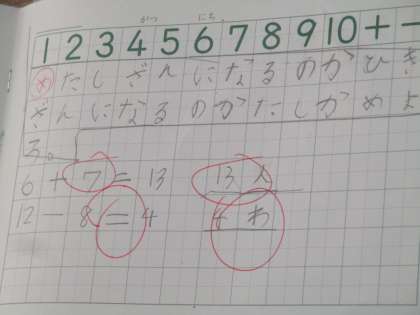 がつ にち
1 2 3 4 5 6 7 8 9 10 + −
め たしざんになるのがひき
ざんになるのかたしかめよ
う。
6 + 7 = 13 13人
12 − 8 = 4 4わ